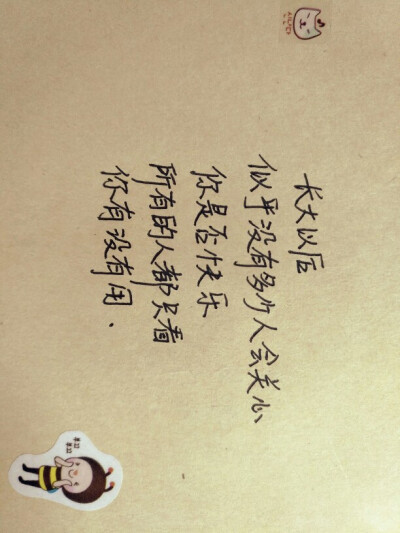 长大以后
似乎没有多少人会关心
你是否快乐
所有的人都只看
你有没有用.